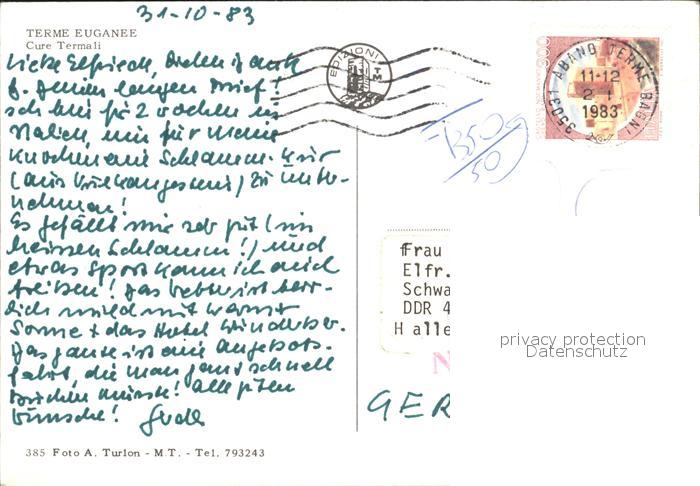 31-10-83
TERME EUGANEE
Cure Termali
Liebe Elfriede, vielen Dank
f. Deinen langen Brief!
Ich bin für 2 Wochen in
Italien, um für meine
Knochen eine Schlamm-Kur
(aus Vulkangestein) zu unter-
nehmen!
Es gefällt mir sehr gut (im
heissen Schlamm!) und
etwas Sport kann ich auch
treiben! Das Wetter ist herr-
lich mild mit warmer
Sonne + das Hotel wunderbar.
Das ganze ist eine Angebots-
fahrt, die man ganz schnell
buchen musste! Alle guten
Wünsche!
385 Foto A. Turlon - M.T. - Tel. 793243
EDIZIONI
M T
300
35031 ABANO TERME BAGNI
11-12
2-1
1983
1350
50
Frau
Elfr.
Schwa
DDR 4
Halle
N
GER
privacy protection
Datenschutz